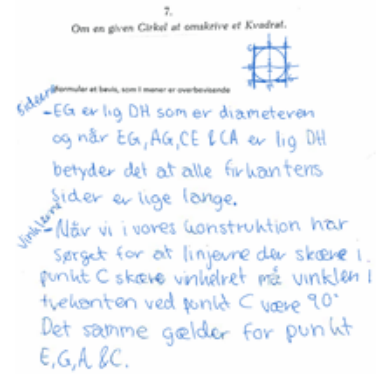 7.
Om en given Cirkel at omskrive et Kvadrat.
Formuler et bevis, som I mener er overbevisende
Siderne
- EG er lig DH som er diameteren
og når EG, AG, CE & CA er lig DH
betyder det at alle firkantens
sider er lige lange.
Vinklerne
- Når vi i vores konstruktion har
sørget for at linjerne der skære i
punkt C skære vinkelret må vinklen i
ved punkt C være 90°
Det samme gælder for punkt
E, G, A & C.